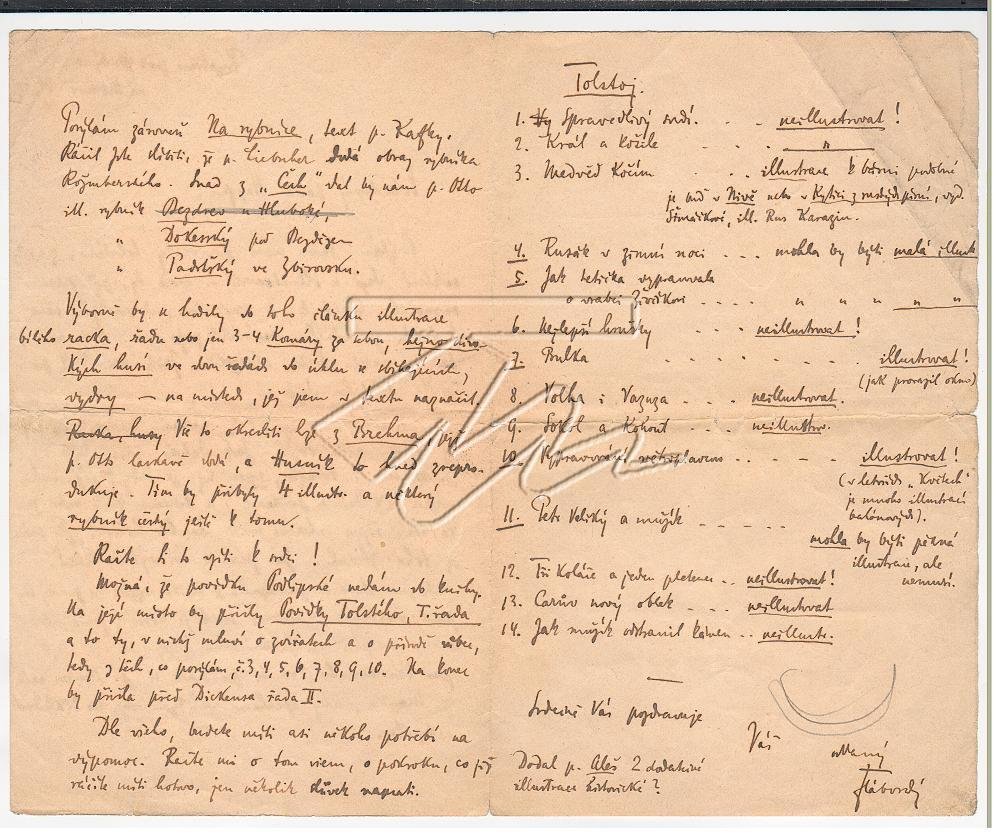 Posýlám zároveň Na rybníce, text p. Kafky.
Ráčil jste slíbiti, že p. Liebscher dodá obraz rybníka
Rožmberského. Snad z „Čech“ dal by nám p. Otto
ill. rybník Bezdrev u Hluboké,
„ Dokesský pod Bezdězem
„ Padrťský ve Zbirovsku.
Výborně by se hodily do toho článku illustrace
bílého racka, řadu nebo jen 3-4 Komáry za sebou, hejno divo-
kých husí ve dvou řadách do úhlu se sbíhajících,
vydry — na místech, jež jsem v textu naznačil.
Racka, husy Vše to okresliti lze z Brehma, jejž
p. Otto laskavě dodá, a Husník to hned zrepro-
dukuje. Tím by přibyly 4 illustr. a některý
rybník český ještě k tomu.
Račte si to vzíti k srdci!
Možná, že povídku Podlipské nedám do knihy.
Na její místo by přišly Povídky Tolstého, I. řada
a to ty, v nichž mluví o zvířatech a o přírodě vůbec,
tedy z těch, co posýlám, č. 3, 4, 5, 6, 7, 8, 9, 10. Na konec
by přišla před Dickensa řada II.
Dle všeho, budete míti asi někoho potřebí na
výpomoc. Račte mi o tom všem, o pokroku, co již
ráčíte míti hotovo, jen několik slůvek napsati.
Tolstoj.
1. Spravedlivý sudí. . . . neillustrovat!
2. Král a košile . . . . „
3. Medvěd Kočím . . . illustrace k básni podobné
je již v Nivě nebo v Kytici z ruských písní, vyd.
Šimáčkově, ill. Rus Karazin.
4. Rusák v zimní noci . . . mohla by býti malá illustr.
5. Jak tetička vypravovala
o vrabci Živčikovi . . . . „ „ „ „ „
6. Nejlepší hrušky . . . neillustrovat!
7. Bulka . . . . . . . . illustrovat!
(jak prorazil okno)
8. Volha i Vazuza . . . neillustrovat.
9. Sokol a Kohout . . . neillustrov.
10. Vypravování vzduchoplavcovo . . . . . illustrovat!
(v letošních „Květech“
je mnoho illustrací
balónových).
11. Petr Veliký a mužík . . . . .
mohla by býti pěkná
illustrace, ale
nemusí.
12. Tři koláče a jeden pletenec . . neillustrovat!
13. Carův nový oblek . . . neillustrovat
14. Jak mužík odstranil kámen . . neillustr.
Srdečně Vás pozdravuje
Váš
oddaný
Dodal p. Aleš 2 dodatečné
illustrace historické?